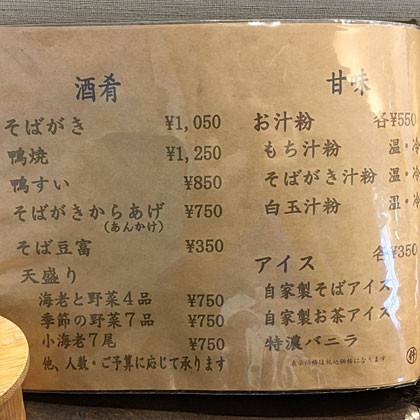 酒肴
そばがき ¥1,050
鴨焼 ¥1,250
鴨すい ¥850
そばがきからあげ ¥750
(あんかけ)
そば豆富 ¥350
天盛り
海老と野菜4品 ¥750
季節の野菜7品 ¥750
小海老7尾 ¥750
他、人数・ご予算に応じて承ります
甘味
お汁粉 各¥550
もち汁粉 温・冷
そばがき汁粉 温・冷
白玉汁粉 温・冷
アイス 各¥350
自家製そばアイス
自家製お茶アイス
特濃バニラ
表示価格は税込価格になります